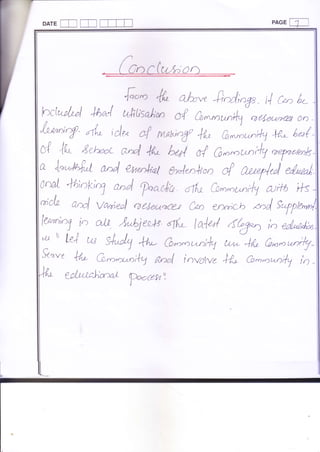 DATE
PAGE 7
Conclusion
from the above findings. it can be
included that utilisation of Community resources on
learning. The idea of making the Community the best
of the School and the best of Community represents
a fruitful and essential extention of accepted educati
onal thinking and practic. The Community with its
wide and varied resources Can enrich and Supplement
learning in all Subjects. The latest Slogan in education
is " let us Study the Community use the Community.
Serve the Community and involve the Community in
the educational process."